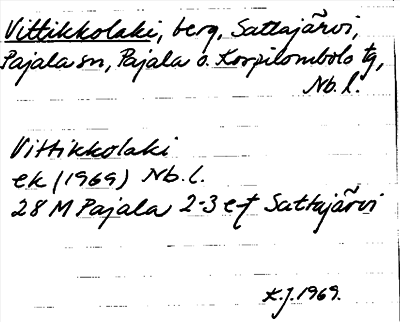 Vittikkolaki, berg, Sattajärvi,
Pajala sn, Pajala o. Korpilombolo tg,
Nb.l.
Vittikkolaki
ek (1969) Nb.l.
28 M Pajala 2-3 e-f Sattajärvi
K.J. 1969.